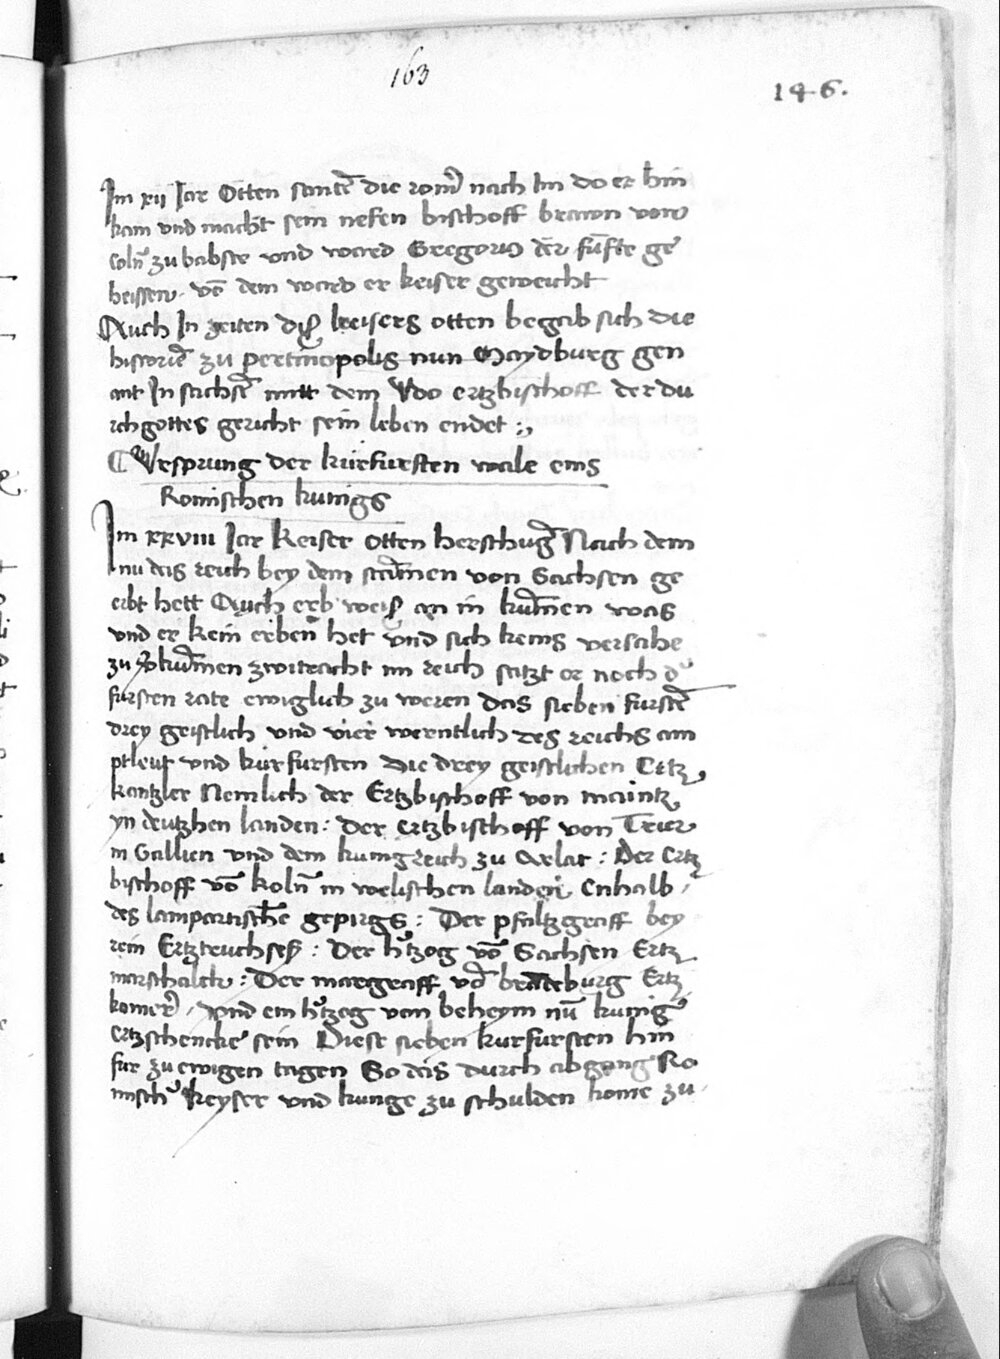 163
146.
Im xii Jar Otten santē die romͬ nach Im do er hin
kam vnd macht sein nefen bischoff brawn von
colñ zu babste vnd ward Gregorius der fūfte ge
heissen. vō dem ward er keiser geweicht
Auch In zeiten diß keisers otten begab sich die
historiē zu pertinopolis nun Maydburg gen
ant In sachsē mitt dem Vdo ertzbischoff der du
rch gottes gericht sein leben endet :,
Vrsprung der kurfursten wale eins
Romischen kunigs
Im xxviii Jar Keiser Otten herschug̃ Nach dem
nu das reich bey dem stam̄en von Sachsen ge
erbt hett Auch erb weiß an in kum̄en was
vnd er kein erben het vnd sich keins versahe
zu ꝟkum̄en zwitracht im reich satzt er noch dˀ
fursten rate ewiglich zu weren das sieben furstē
drey geistlich vnd vier werntlich des reichs am
ptleut vnd kurfursten Die drey geistlichen Ertz
kantzler Nemlich der Ertzbischoff von maintz
yn deutzhen landen : Der ertzbischoff von Trier
in Gallien vnd dem kunigreich zu Arlat : Der Ertz
bischoff vō kolñ in welischen landen enhalb
des lampartischē gepirgs : Der pfaltzgraff bey
rein Ertztruchseß : Der hˀtzog vō Sachsen Ertz
marschalck : Der marggraff vō brandeburg Ertz
komerͬ, vnd ein hˀtzog von beheym nū kunig
ertzschencke sein Diese sieben kurfursten hin
fur zu ewigen tagen So das durch abgang Ro
mischˀ keyser vnd kunge zu schulden kome zu